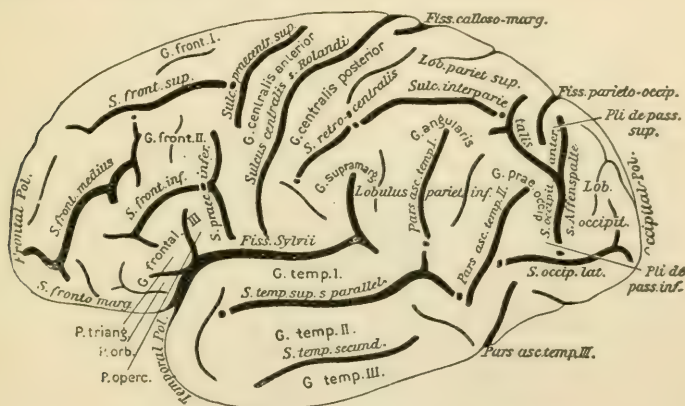 Fiss.calloso-marg.
G. front. I.
Sulc. praecentr. sup.
G. centralis anterior
Sulcus centralis s. Rolandi
G. centralis posterior
Lob. pariet sup.
Sulc. interparie
talis
Fiss. parieto-occip.
S. front. sup.
S. retro-centralis
G. angularis
Pli de pass.
sup.
G. front. II.
S. front. medius
S. front. inf.
S. praec. infer.
G. supramarg.
Lobulus pariet. inf.
Pars asc. temp. I.
G. Prae
occip
S. occipit anter.
s. Affenspalte
Lob.
occipit.
Occipital-Pol.
Frontal Pol.
G. frontal. III
Fiss. Sylvii
Pars asc. temp. II.
G. temp. I.
S. occip. lat.
Pli de
pass. inf.
S. fronto marg
S. temp. sup. s parallel.
P. triang.
P. orb.
P. operc.
Temporal Pol.
G. temp. II.
S. temp. secund.
G temp. III.
Pars asc. temp. III.